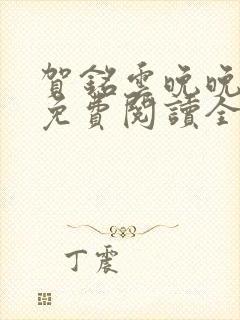 賀銘雲晚晚
免費閱讀全
丁震